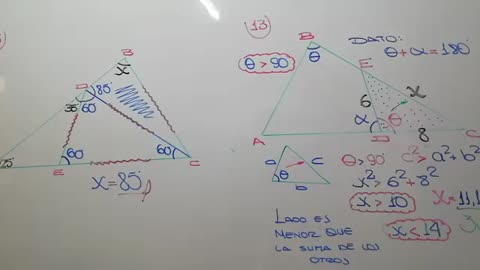 B
x
D
80°
35°
60
60
60
E
C
x = 85°
13)
DATO:
θ + α = 180°
θ > 90°
B
θ
E
x
6
α
θ
A
D
8
C
a
c
θ
b
θ > 90°
c² > a² + b²
x² > 6² + 8²
x > 10
x < 14
x = 11,1
LADO ES
MENOR QUE
LA SUMA DE LOS
OTROS